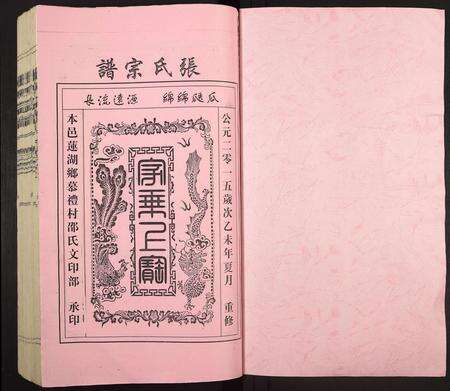 張氏宗譜
瓜瓞綿綿 源遠流長
公元二零一五歲次乙未年夏月 重修
家乘上寶
本邑蓮湖鄉慕禮村邵氏文印部 承印